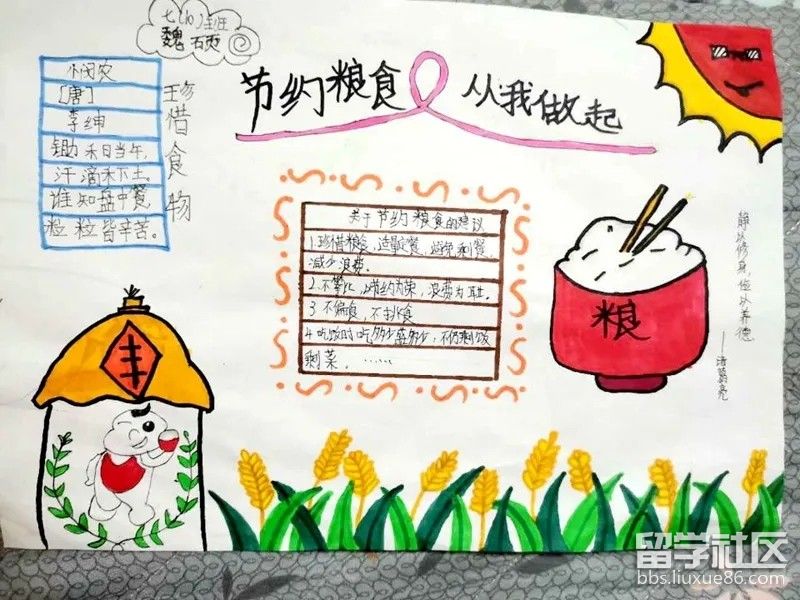 七(10)班
魏硕
节约粮食 从我做起
悯农
[唐]
李绅
锄禾日当午,
汗滴禾下土。
谁知盘中餐,
粒粒皆辛苦。
珍惜食物
关于节约粮食的建议
1.珍惜粮食,适量定餐,避免剩餐,
减少浪费。
2.不攀比,以节约为荣,浪费为耻。
3 不偏食,不挑食
4 吃饭时吃多少盛多少,不扔剩饭
剩菜。……
粮
静以修身,俭以养德
——诸葛亮
丰
留学社区
bbs.liuxue86.com